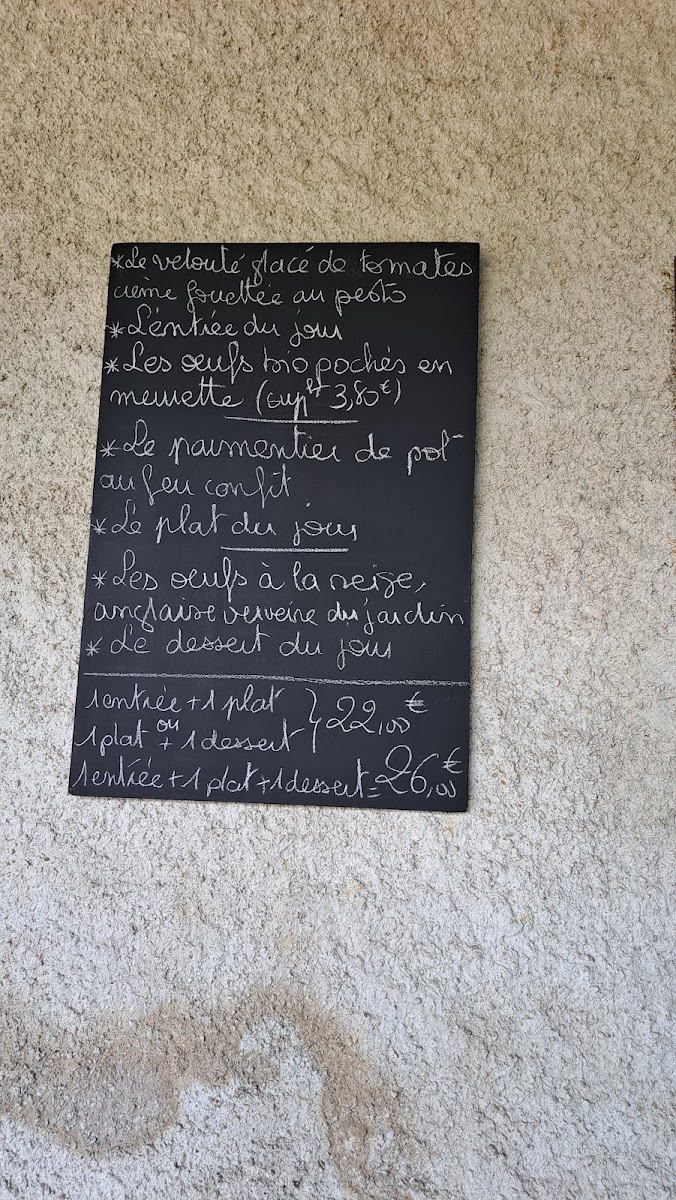 *Le velouté glacé de tomates
crème fouettée au pesto
* L'entrée du jour
* Les œufs bio pochés en
meurette (supᵗ 3,80€)
* Le parmentier de pot-
au feu confit
* Le plat du jour
* Les œufs à la neige,
anglaise verveine du jardin
* Le dessert du jour
1 entrée + 1 plat } 22,00 €
ou
1 plat + 1 dessert
1 entrée + 1 plat + 1 dessert = 26,00 €